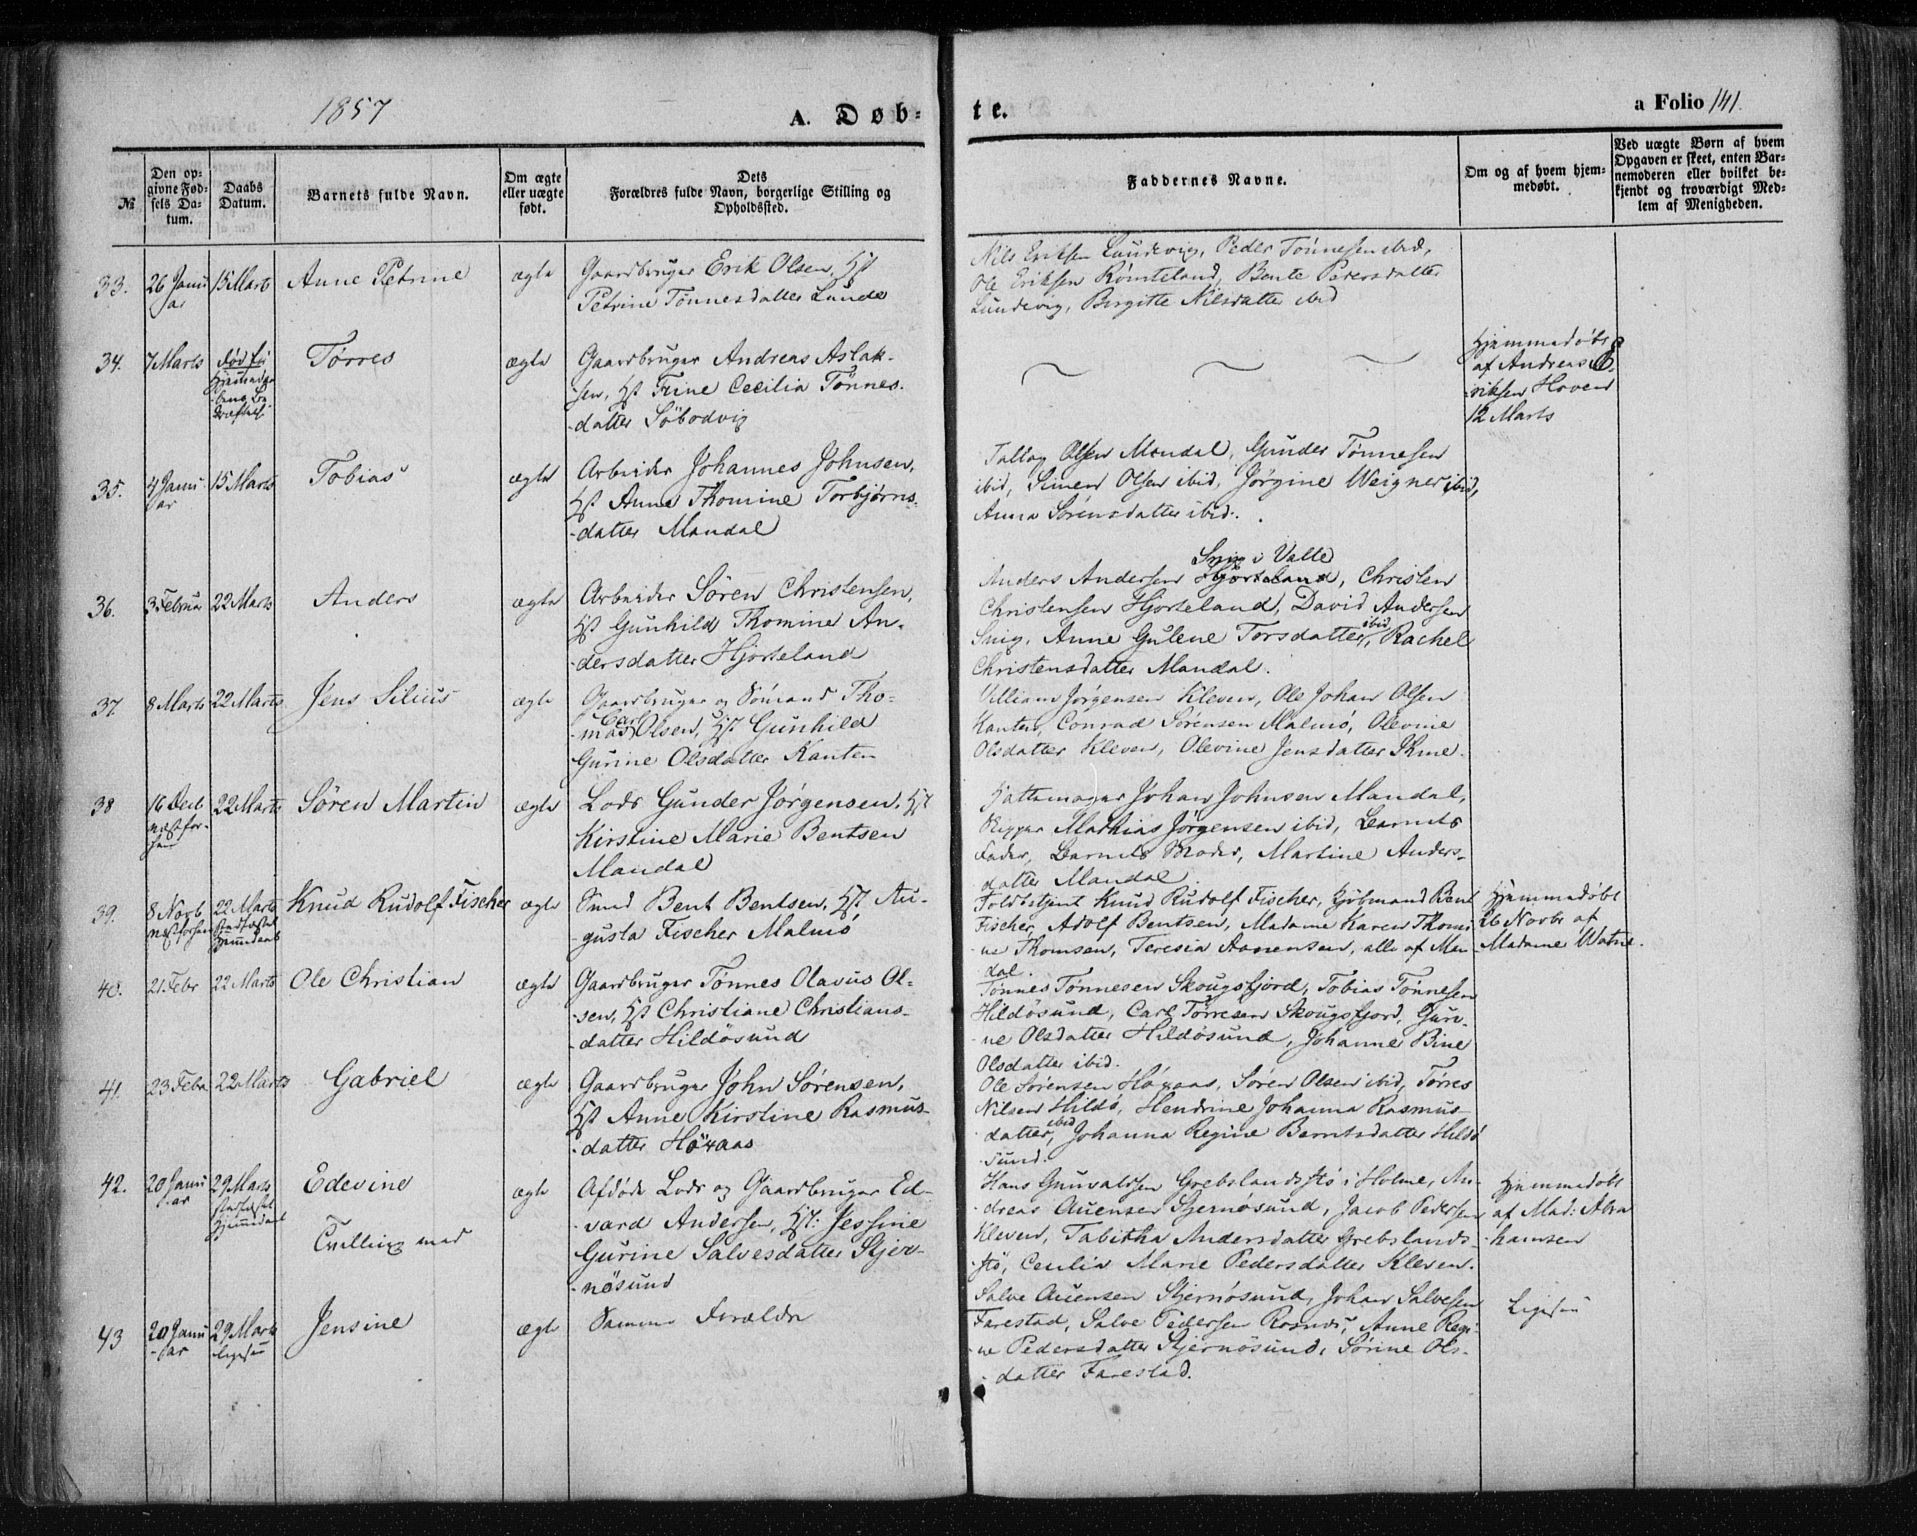 1857
A. Døb-
te.
a Folio 141.
№
Den op-
givne Fød-
sels Da-
tum.
Daabs
Datum.
Barnets fulde Navn.
Om ægte
eller uægte
født.
Dets
Forældres fulde Navn, borgerlige Stilling og
Opholdssted.
Faddernes Navne.
Om og af hvem hjem-
medøbt.
Ved uægte Børn af hvem
Opgaven er skeet, enten Bar-
nemoderen eller hvilket be-
kjendt og troværdigt Med-
lem af Menigheden.
33.
26 Janu
ar
15 Marts
Anne Petrine
ægte
Gaardbruger Erik Olsen, Hst
Petrine Tønnesdatter Lunde
Nils Eriksen Lundevig, Peder Tønnesen ibid,
Ole Eriksen Rømteland, Bente Pedersdatter
Lundevig, Birgitte Nilsdatter ibid
34.
7 Marts
Tørres
ægte
Gaardbruger Andreas Aslak-
sen, Hst Trine Cecilia Tønnes-
datter Søbodvig
Hjemmedøbt
af Andreas
riksen Hoven
12 Marts
35.
4 Janu
ar
15 Marts
Tobias
ægte
Arbeider Johannes Johnsen,
Hst Anne Thomine Torbjørns-
datter Mandal
Tallag Olsen Mandal, Gunder Tønnesen
ibid, Simen Olsen ibid, Jørgine Weigner ibid,
Anna Sørensdatter ibid.
36.
3 Februa
22 Marts
Anders
ægte
Arbeider Søren Christensen,
Hst Gunhild Thomine An-
dersdatter Hjorteland
Snig i Valle
Anders Andersen Hjorteland, Christen
Christensen Hjorteland, David Andersen
Snig, Anne Gulene Torsdatter ibid, Rachel
Christensdatter Mandal.
37.
8 Marts
22 Marts
Jens Silius
ægte
Gaardbruger og Sømand Tho-
mas Carl Olsen, Hst Gunhild
Gurine Olsdatter Kanten
Villiam Jørgensen Kleven, Ole Johan Olsen
Kanten, Conrad Sørensen Malmø, Olevine
Olsdatter Kleven, Olevine Jensdatter
38
16 Decb
næstfor-
hen
22 Marts
Søren Martin
ægte
Lods Gunder Jørgensen, Hst
Kirstine Marie Bentsen
Mandal
Hattemager Johan Johnsen Mandal,
Skipper Mathias Jørgensen ibid, Barnets
Fader, Barnets Moder, Martine Anders-
datter Mandal.
39.
8 Novb
næstforhen
22 Marts
stadfæstet
Hjemmedaab
Knud Rudolf Fischer
ægte
Smed Bent Bentsen, Hst Au-
gusta Fischer Malmø
Toldbetjent Knud Rudolf Fischer, Kjøbmand Bent
Fischer, Adolf Bentsen, Madame Karen Thomi
ne Thomsen, Teresia Aanensen, alle af Man-
dal.
Hjemmedøbt
26 Novbr af
Madame Watne.
40.
21. Febr
22 Marts
Ole Christian
ægte
Gaardbruger Tønnes Olavus Ol-
sen, Hst Christiane Christians-
datter Hildøsund
Tønnes Tønnesen Skougsfjord, Tobias Tønnesen
Hildøsund, Carl Tørresen Skougsfjord, Guri-
ne Olsdatter Hildøsund, Johanne Bine
Olsdatter ibid.
41.
23 Febr
22 Marts
Gabriel
ægte
Gaardbruger John Sørensen,
Hst Anne Kirstine Rasmus-
datter Høyaas
Ole Sørensen Høyaas, Søren Olsen ibid, Tørres
Nilsen Hildø, Hendrine Johanna Rasmus-
datter ibid, Johanna Regine Berntsdatter Hildø
sund.
42.
20 Janu
ar
29 Marts
stadfæstet
Hjemmedaab
Edevine
Tvilling med
ægte
Afdøde Lods og Gaardbruger Ed-
vard Andersen, Hst: Jessine
Gurine Salvesdatter Skjer-
nøsund
Hans Gunvaldsen Grebslandsstø i Holme, An-
dreas Auensen Skjernøsund, Jacob Pedersen
Kleven, Tabitha Andersdatter Grebslands-
stø, Cecilia Marie Pedersdatter Kleven.
Hjemmedøbt
af Mad: Abra
hamsen
43
20 Janu
ar
29 Marts
ligesaa
Jensine
ægte
Samme Forældre
Salve Auensen Skjernøsund, Johan Salvesen
Farestad, Salve Pedersen Rosnæs, Anne Regi-
ne Pedersdatter Skjernøsund, Sørine Ols-
datter Farestad.
Ligesaa